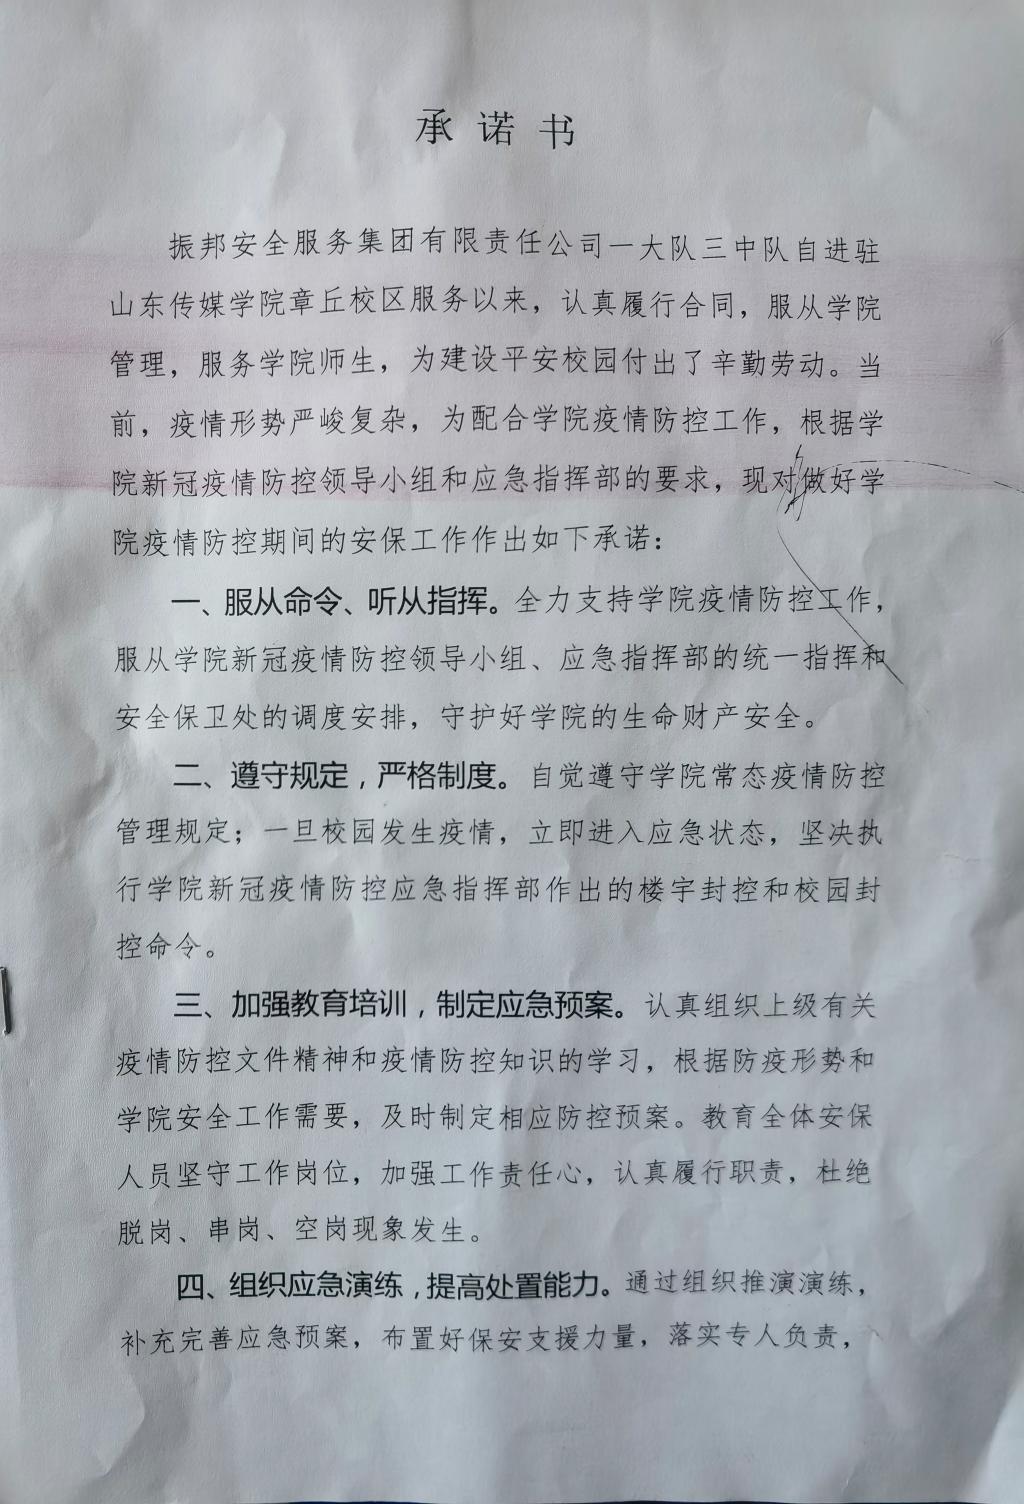 承诺书
振邦安全服务集团有限责任公司一大队三中队自进驻
山东传媒学院章丘校区服务以来，认真履行合同，服从学院
管理，服务学院师生，为建设平安校园付出了辛勤劳动。当
前，疫情形势严峻复杂，为配合学院疫情防控工作，根据学
院新冠疫情防控领导小组和应急指挥部的要求，现对做好学
院疫情防控期间的安保工作作出如下承诺：
一、服从命令、听从指挥。全力支持学院疫情防控工作，
服从学院新冠疫情防控领导小组、应急指挥部的统一指挥和
安全保卫处的调度安排，守护好学院的生命财产安全。
二、遵守规定，严格制度。自觉遵守学院常态疫情防控
管理规定；一旦校园发生疫情，立即进入应急状态，坚决执
行学院新冠疫情防控应急指挥部作出的楼宇封控和校园封
控命令。
三、加强教育培训，制定应急预案。认真组织上级有关
疫情防控文件精神和疫情防控知识的学习，根据防疫形势和
学院安全工作需要，及时制定相应防控预案。教育全体安保
人员坚守工作岗位，加强工作责任心，认真履行职责，杜绝
脱岗、串岗、空岗现象发生。
四、组织应急演练，提高处置能力。通过组织推演演练，
补充完善应急预案，布置好保安支援力量，落实专人负责，